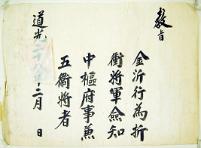 敎旨
金沂行為折
衝將軍僉知
中樞府事兼
五衛將者
道光二十年月 日